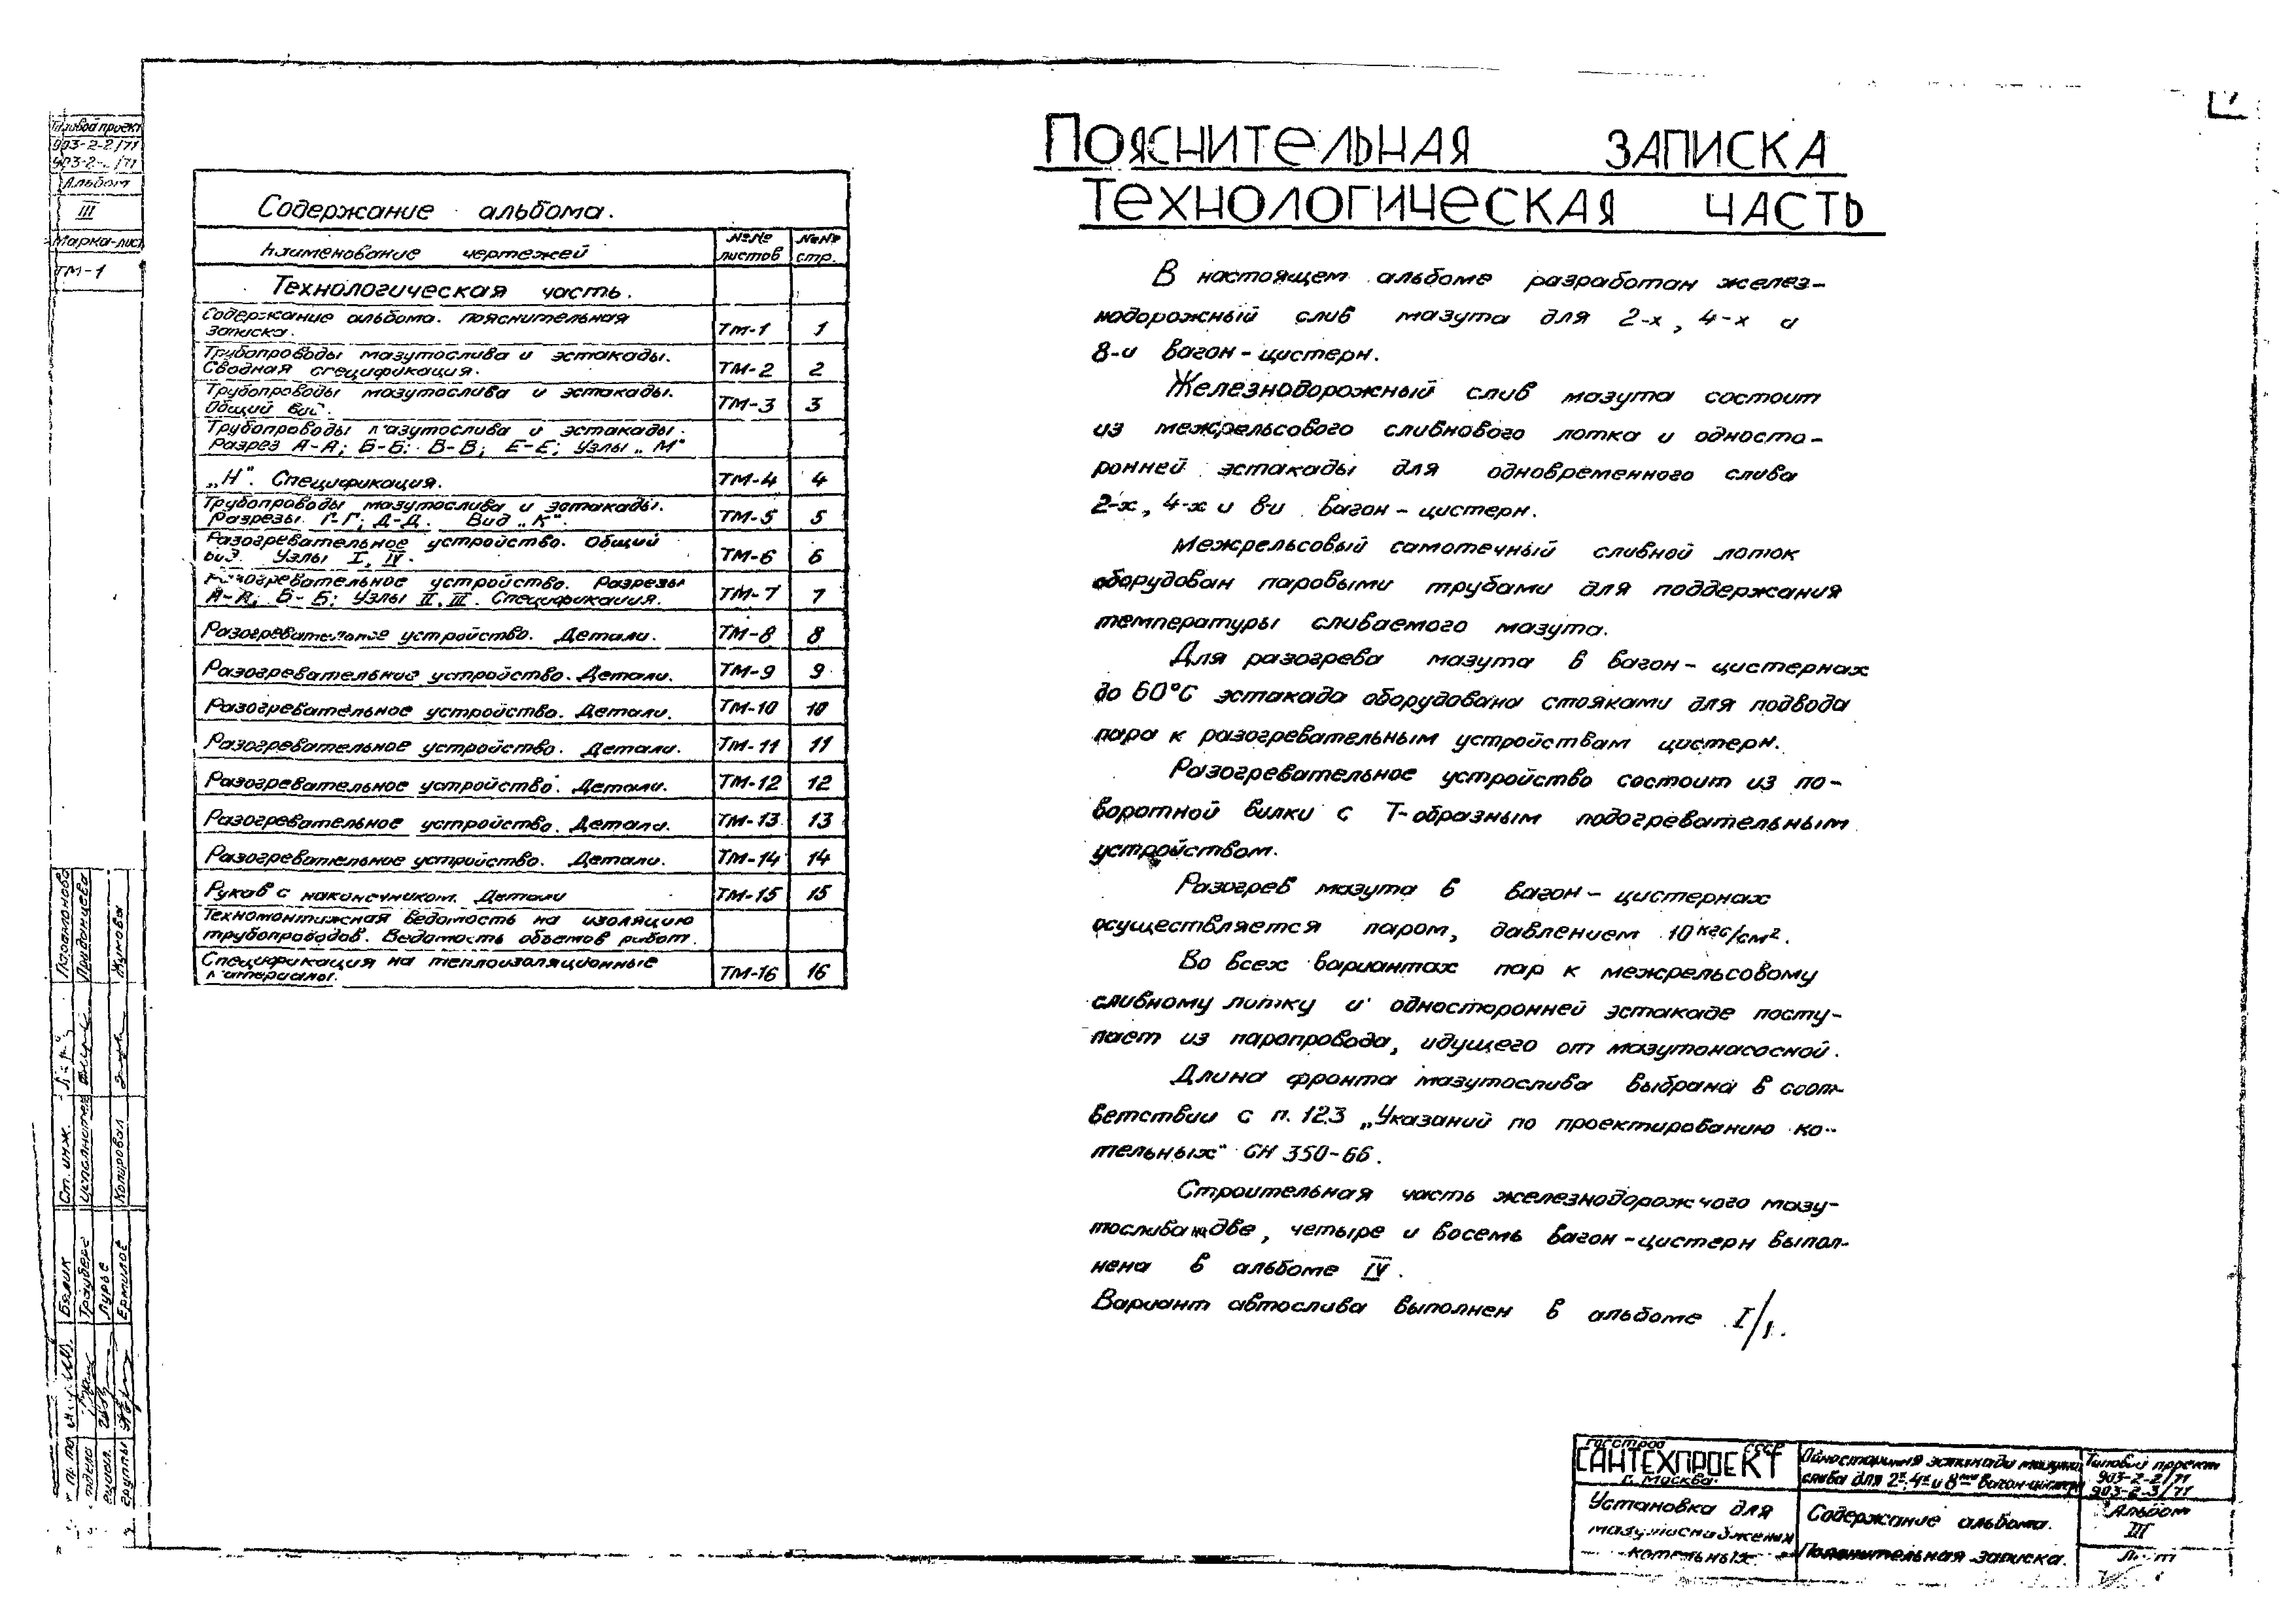 Типовой проект
903-2-2/71
903-2-3/71
Альбом
III
Марка-лист
ТМ-1
Содержание альбома.
Наименование чертежей
№№ листов
№№ стр.
Технологическая часть.
Содержание альбома. Пояснительная
записка. ТМ-1 1
Трубопроводы мазутослива и эстакады.
Сводная спецификация. ТМ-2 2
Трубопроводы мазутослива и эстакады.
Общий вид. ТМ-3 3
Трубопроводы мазутослива и эстакады.
Разрез А-А; Б-Б; В-В; Е-Е; Узлы „М"
„Н". Спецификация. ТМ-4 4
Трубопроводы мазутослива и эстакады.
Разрезы Г-Г; Д-Д. Вид „К". ТМ-5 5
Разогревательное устройство. Общий
вид. Узлы I, IV. ТМ-6 6
Разогревательное устройство. Разрезы
А-А; Б-Б; Узлы II, III. Спецификация. ТМ-7 7
Разогревательное устройство. Детали. ТМ-8 8
Разогревательное устройство. Детали. ТМ-9 9
Разогревательное устройство. Детали. ТМ-10 10
Разогревательное устройство. Детали. ТМ-11 11
Разогревательное устройство. Детали. ТМ-12 12
Разогревательное устройство. Детали. ТМ-13 13
Разогревательное устройство. Детали. ТМ-14 14
Рукав с наконечником. Детали ТМ-15 15
Техномонтажная ведомость на изоляцию
трубопроводов. Ведомость объемов работ.
Спецификация на теплоизоляционные
материалы. ТМ-16 16
Пояснительная записка
Технологическая часть
В настоящем альбоме разработан желез-
нодорожный слив мазута для 2-х, 4-х и
8-и вагон-цистерн.
Железнодорожный слив мазута состоит
из межрельсового сливнового лотка и односто-
ронней эстакады для одновременного слива
2-х, 4-х и 8-и вагон-цистерн.
Межрельсовый самотечный сливной лоток
оборудован паровыми трубами для поддержания
температуры сливаемого мазута.
Для разогрева мазута в вагон-цистернах
до 60°С эстакада оборудована стояками для подвода
пара к разогревательным устройствам цистерн.
Разогревательное устройство состоит из по-
воротной вилки с Т-образным подогревательным
устройством.
Разогрев мазута в вагон-цистернах
осуществляется паром, давлением 10 кгс/см².
Во всех вариантах пар к межрельсовому
сливному лотку и односторонней эстакаде посту-
пает из паропровода, идущего от мазутонасосной.
Длина фронта мазутослива выбрана в соот-
ветствии с п. 12.3 „Указаний по проектированию ко-
тельных" СН 350-66.
Строительная часть железнодорожного мазу-
тослива на две, четыре и восемь вагон-цистерн выпол-
нена в альбоме IV.
Вариант автослива выполнен в альбоме I/1.
Ст. инж.
Исполнитель
Придонцева
Копировал
Жукова
Бялик
Трауберг
Лурье
Ермилов
группы
Госстрой СССР
САНТЕХПРОЕКТ
г. Москва.
Установка для
мазутоснабжения
котельных
Односторонняя эстакада мазуто-
слива для 2х, 4х и 8ми вагон-цистерн
Содержание альбома.
Пояснительная записка.
Типовой проект
903-2-2/71
903-2-3/71
Альбом
III
Лист